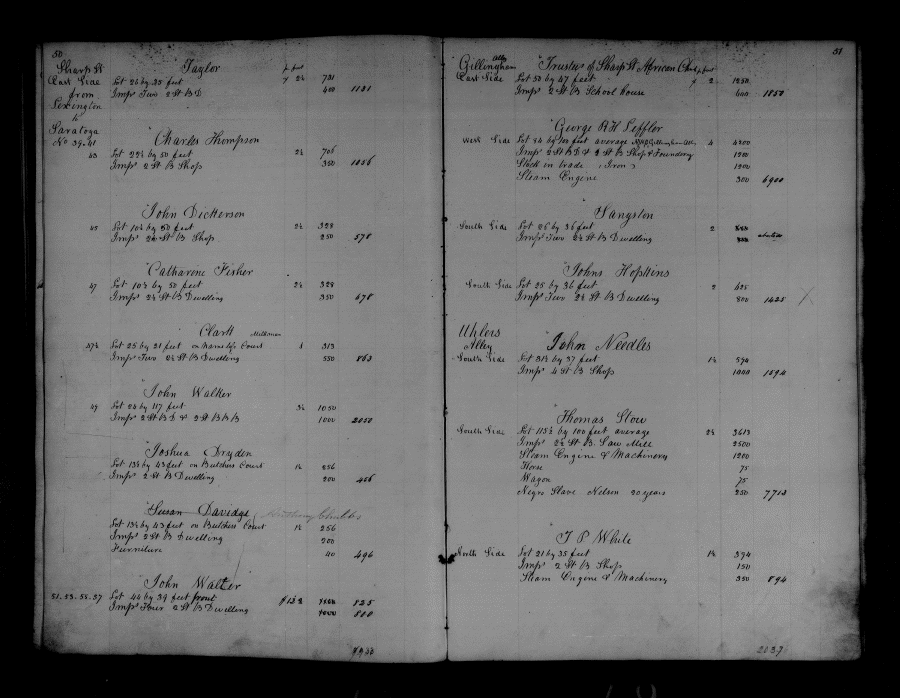 50
Sharp St
East Side
from
Lexington
to
Saratoga
No 39.41
Taylor
Lot 26 by 35 feet 731
Imps Two 2 St B D 400 1131
Charles Thompson
43 Lot by 50 feet 706
Imps 2 St B Shop 350 1056
John Dickerson
45 Lot 10½ by 50 feet 2½ 328
Imps 2½ St B Shop 250 578
Catharine Fisher
47 Lot 10½ by 50 feet 2½ 328
Imps 2½ St B Dwelling 350 678
Clark Milkman
47½ Lot 25 by 21 feet on Court 313
Imps Two 2½ St B Dwelling 550 863
John Walker
49 Lot by 117 feet 3½ 1050
Imps 2 St B D & 2 St B B B 1000 2050
Joshua Dryden
Lot 13½ by 43 feet on Butchers Court 256
Imps 2 St B Dwelling 200 456
Susan Davidge
Lot 13½ by 43 feet on Butchers Court 256
Imps 2 St B Dwelling 200
Furniture 40 496
John Walter
51.53.55.57 Lot 44 by 39 feet front 825
Imps Four 2 St B Dwelling 800
51
Gillingham Alley
East Side
Trustees of Sharp St African Church
Lot 50 by 47 feet 2 1250
Imps 2 St B School house 600 1850
George R H Leffler
West Side Lot 84 by 100 feet average 4 4200
Imps 2 St B D & 2 St B Shop & Foundery
Stock in trade (Iron)
Steam Engine 300 6900
Sangston
South Side Lot 25 by 36 feet 2
Imps Two 2½ St B Dwelling
Johns Hopkins
South Side Lot 25 by 36 feet 2 625
Imps Two 2½ St B Dwelling 800 1425 X
Uhlers
Alley
John Needles
South Side Lot 31½ by 37 feet 594
Imps 4 St B Shop 1000 1594
Thomas Stow
South Side Lot 115½ by 100 feet average 2½ 3613
Imps 2½ St B Saw Mill 2500
Steam Engine & Machinery 1200
Horse 75
Wagon 75
Negro Slave Nelson 20 years 250 7713
T P White
North Side Lot 21 by 35 feet 394
Imps 2 St B Shop 150
Steam Engine & Machinery 350 894